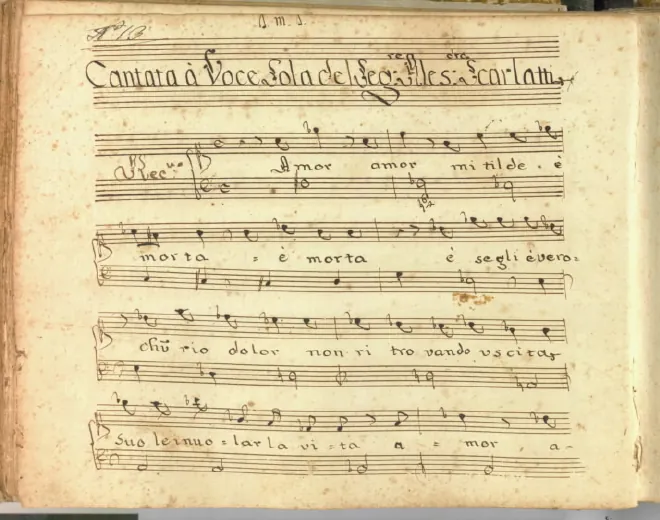 N.º 13
A. m. d.
Cantata à Voce Sola del Seg.r Alles: Scarlatti
Rec.vo
Amor amor mi til de - è
morta - è morta è segli è vero =
ch'ū rio dolor non ri tro vando vscita
Suo le inuo = lar la vi = ta a = mor a -